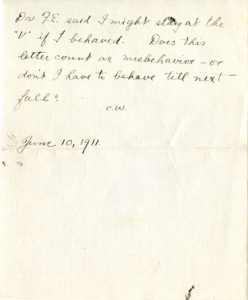 Dr F.E. said I might stay at the
"V" if I behaved. Does this
letter count as misbehavior - or
don't I have to behave till next
fall?
C.W.
June 10, 1911.